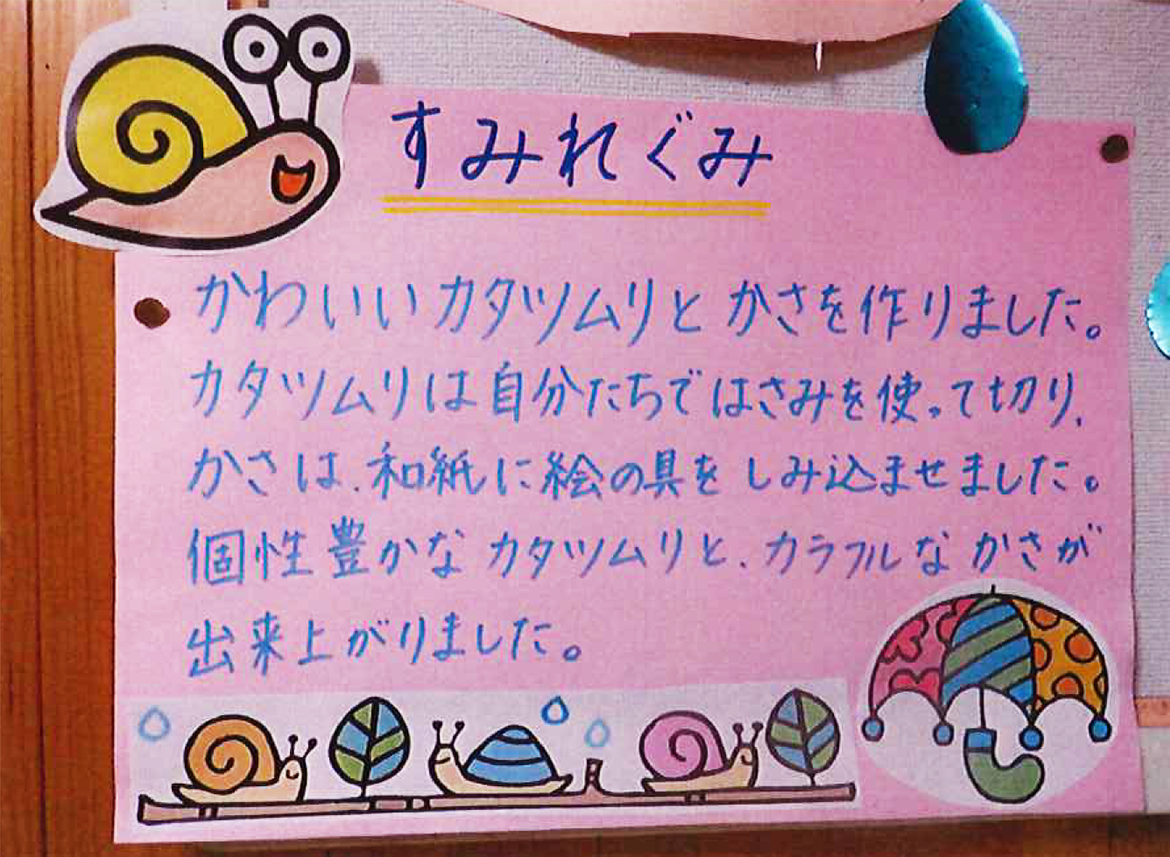 すみれぐみ
かわいいカタツムリとかさを作りました。
カタツムリは自分たちではさみを使って切り、
かさは、和紙に絵の具をしみ込ませました。
個性豊かなカタツムリと、カラフルなかさが
出来上がりました。